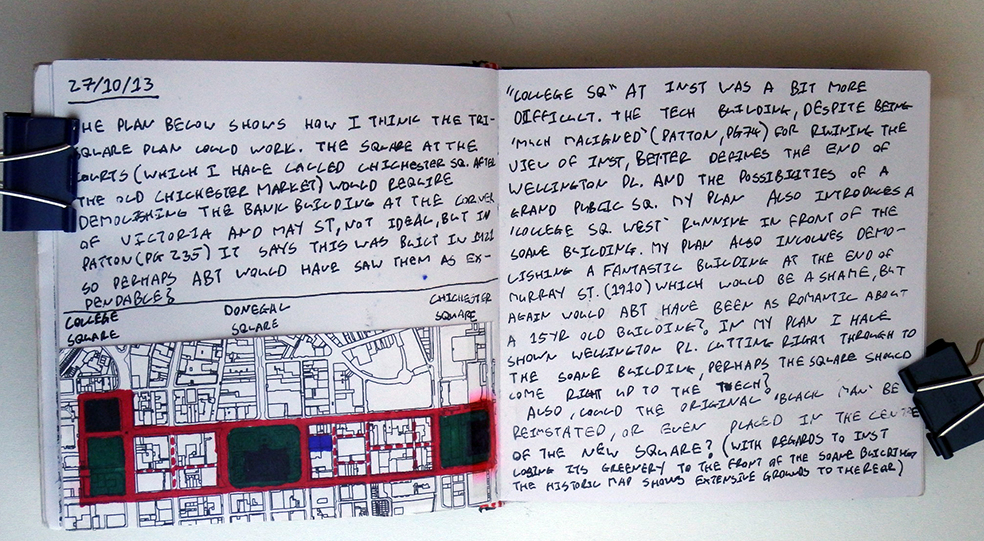 27/10/13
THE PLAN BELOW SHOWS HOW I THINK THE TRI-
SQUARE PLAN COULD WORK. THE SQUARE AT THE
COURTS (WHICH I HAVE CALLED CHICHESTER SQ. AFTER
THE OLD CHICHESTER MARKET) WOULD REQUIRE
DEMOLISHING THE BANK BUILDING AT THE CORNER
OF VICTORIA AND MAY ST, NOT IDEAL, BUT IN
PATTON (PG 235) IT SAYS THIS WAS BUILT IN 1921
SO PERHAPS ABT WOULD HAVE SAW THEM AS EX-
PENDABLE?
COLLEGE
SQUARE
DONEGAL
SQUARE
CHICHESTER
SQUARE
"COLLEGE SQ" AT INST WAS A BIT MORE
DIFFICULT. THE TECH BUILDING, DESPITE BEING
'MUCH MALIGNED' (PATTON, PG74) FOR RUINING THE
VIEW OF INST, BETTER DEFINES THE END OF
WELLINGTON PL. AND THE POSSIBILITIES OF A
GRAND PUBLIC SQ. MY PLAN ALSO INTRODUCES A
'COLLEGE SQ. WEST' RUNNING IN FRONT OF THE
SOANE BUILDING. MY PLAN ALSO INVOLVES DEMO-
LISHING A FANTASTIC BUILDING AT THE END OF
MURRAY ST. (1910) WHICH WOULD BE A SHAME, BUT
AGAIN WOULD ABT HAVE BEEN AS ROMANTIC ABOUT
A 15YR OLD BUILDING? IN MY PLAN I HAVE
SHOWN WELLINGTON PL. CUTTING RIGHT THROUGH TO
THE SOANE BUILDING, PERHAPS THE SQUARE SHOULD
COME RIGHT UP TO THE TECH?
ALSO, COULD THE ORIGINAL 'BLACK MAN' BE
REINSTATED, OR EVEN PLACED IN THE CENTRE
OF THE NEW SQUARE? (WITH REGARDS TO INST
LOSING ITS GREENERY TO THE FRONT OF THE SOANE BUILDING
THE HISTORIC MAP SHOWS EXTENSIVE GROUNDS TO THE REAR)